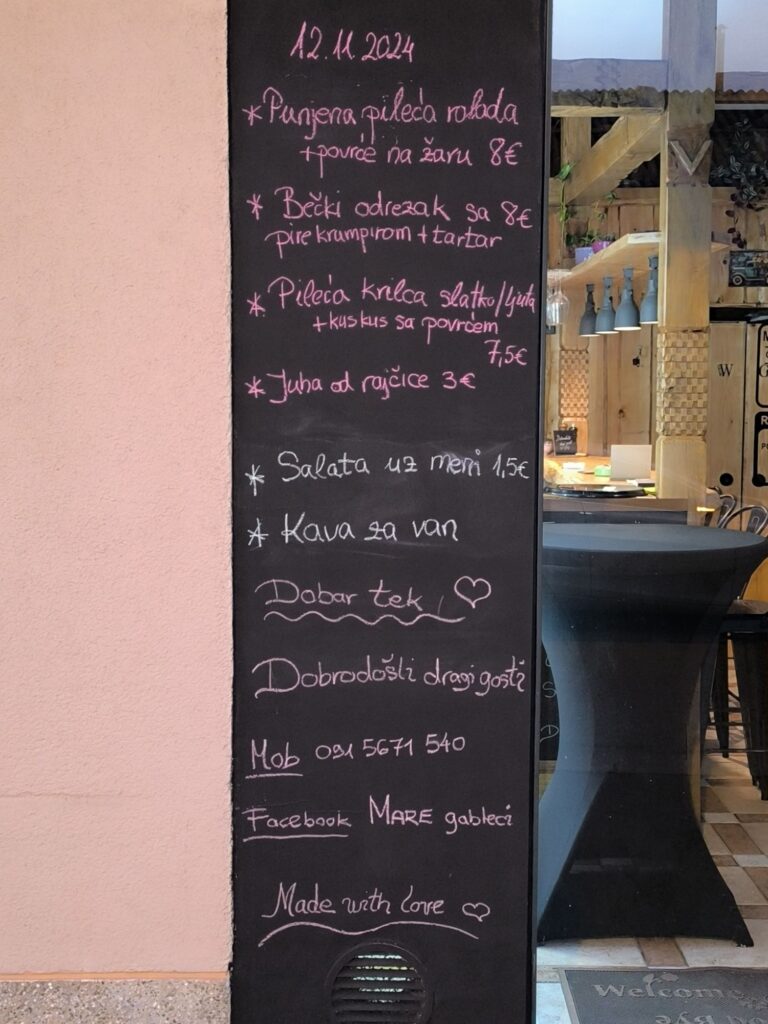 12.11.2024
* Punjena pileća rolada
+povrće na žaru 8€
* Bečki odrezak sa 8€
pire krumpirom + tartar
* Pileća krilca slatko/ljuta
+kuskus sa povrćem
7,5€
* Juha od rajčice 3€
* Salata uz meni 1,5€
* Kava za van
Dobar tek, ♡
Dobrodošli dragi gosti
Mob 091 5671 540
Facebook MARE gableci
Made with love ♡
W
Welcome